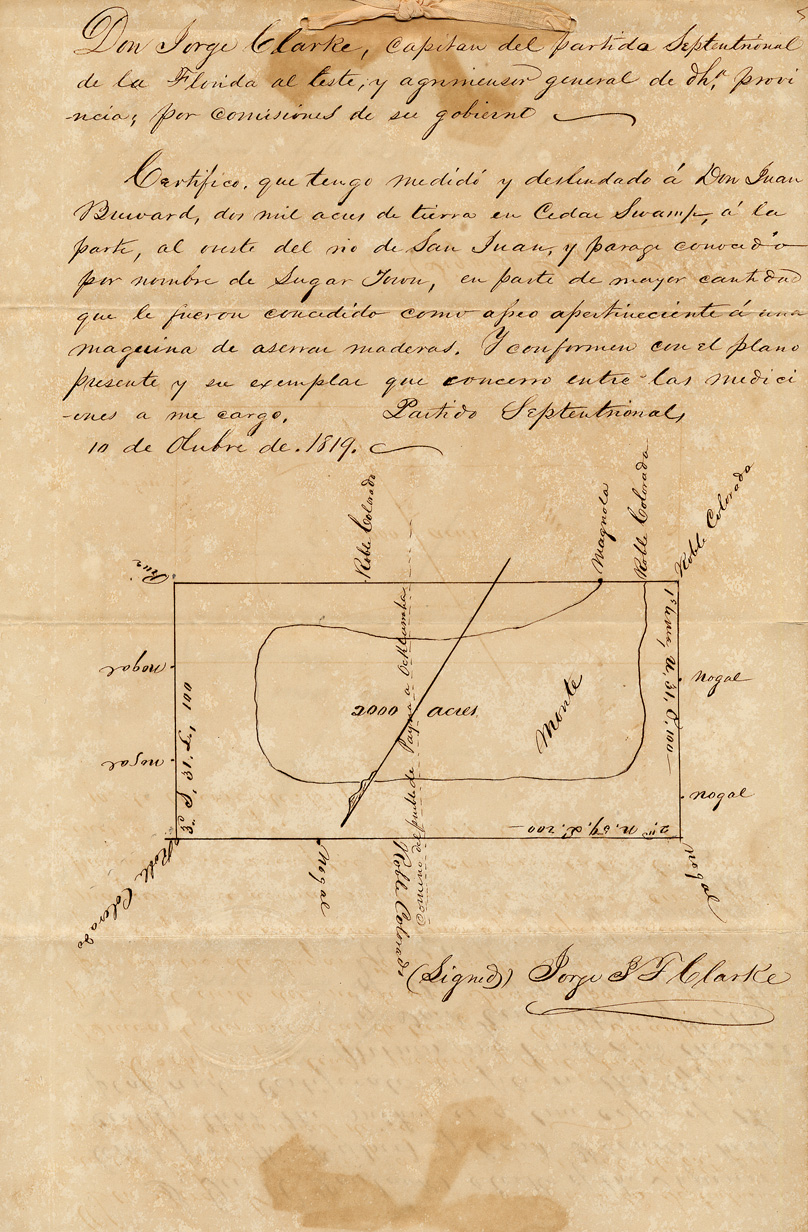 Don Jorge Clarke, capitan del partido Septentrional
de la Florida al leste; y agrimensor general de dh.ª provi
-ncia; por comisiones de su gobierno
Certifico. que tengo medidó y deslindado á Don Juan
Buward, dos mil acres de tierra en Cedar Swamp, á la
parte, al oueste del rio de San Juan, y parage conocido
por nombre de Sugar Town, en parte de mayor cantidad
que le fueron concedido como apeo apertineciente á una
maquina de aserrar maderas. Y conformen con el plano
presente y su exemplar que concerro entre las medici
-ones a me cargo. Partido Septentrional,
10 de Otubre de. 1819.
Roble Colorado
Magnola
Roble Colorada
Roble Colorada
nogal
nogal
nogal
nogal
2000 acres
Monte
Camino del pueblo de Payna a Ocklawaha
3.º S, 31. 100
2.º N. 59, 200
Roble Colorado
Nogal
Roble Colorado
Nogal
(Signed) Jorge J F Clarke